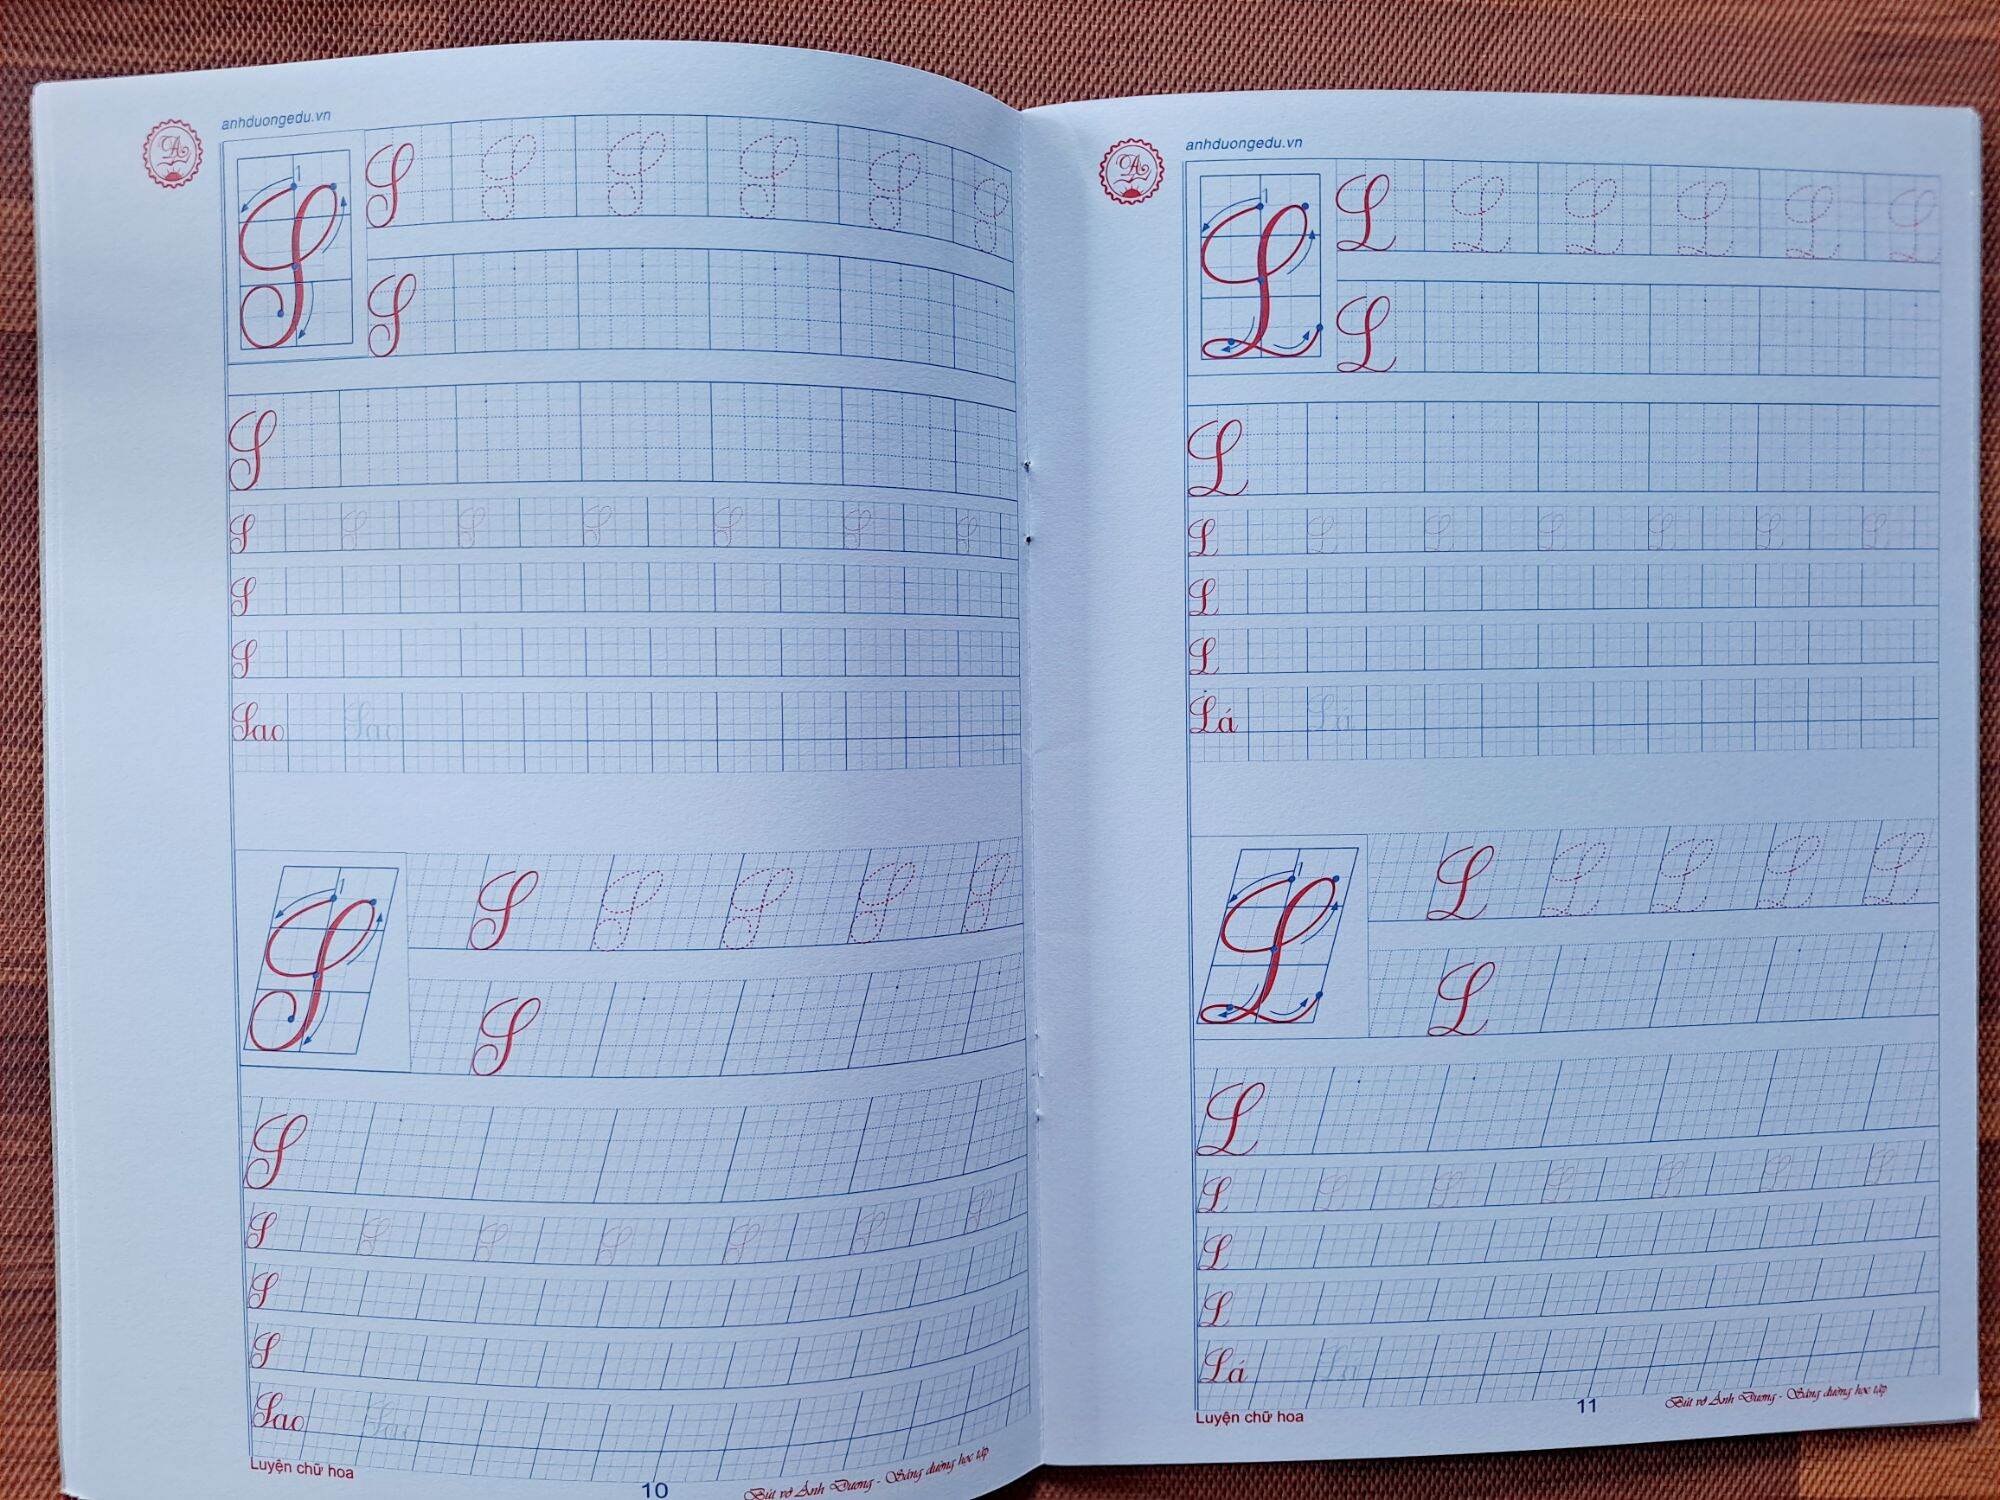 anhduongedu.vn
A
1
S S S S S S S
S S
S
S S S S S S S
S
S
Sao Sao
1
S S S S S S
S S
S
S S S S S S S
S
S
Sao Sao
Luyện chữ hoa
10
Bút vở Ánh Dương - Sáng đường học tập
anhduongedu.vn
A
1
L L L L L L L
L L
L
L L L L L L L
L
L
Lá Lá
1
L L L L L L
L L
L
L L L L L L L
L
L
Lá Lá
Luyện chữ hoa
11
Bút vở Ánh Dương - Sáng đường học tập